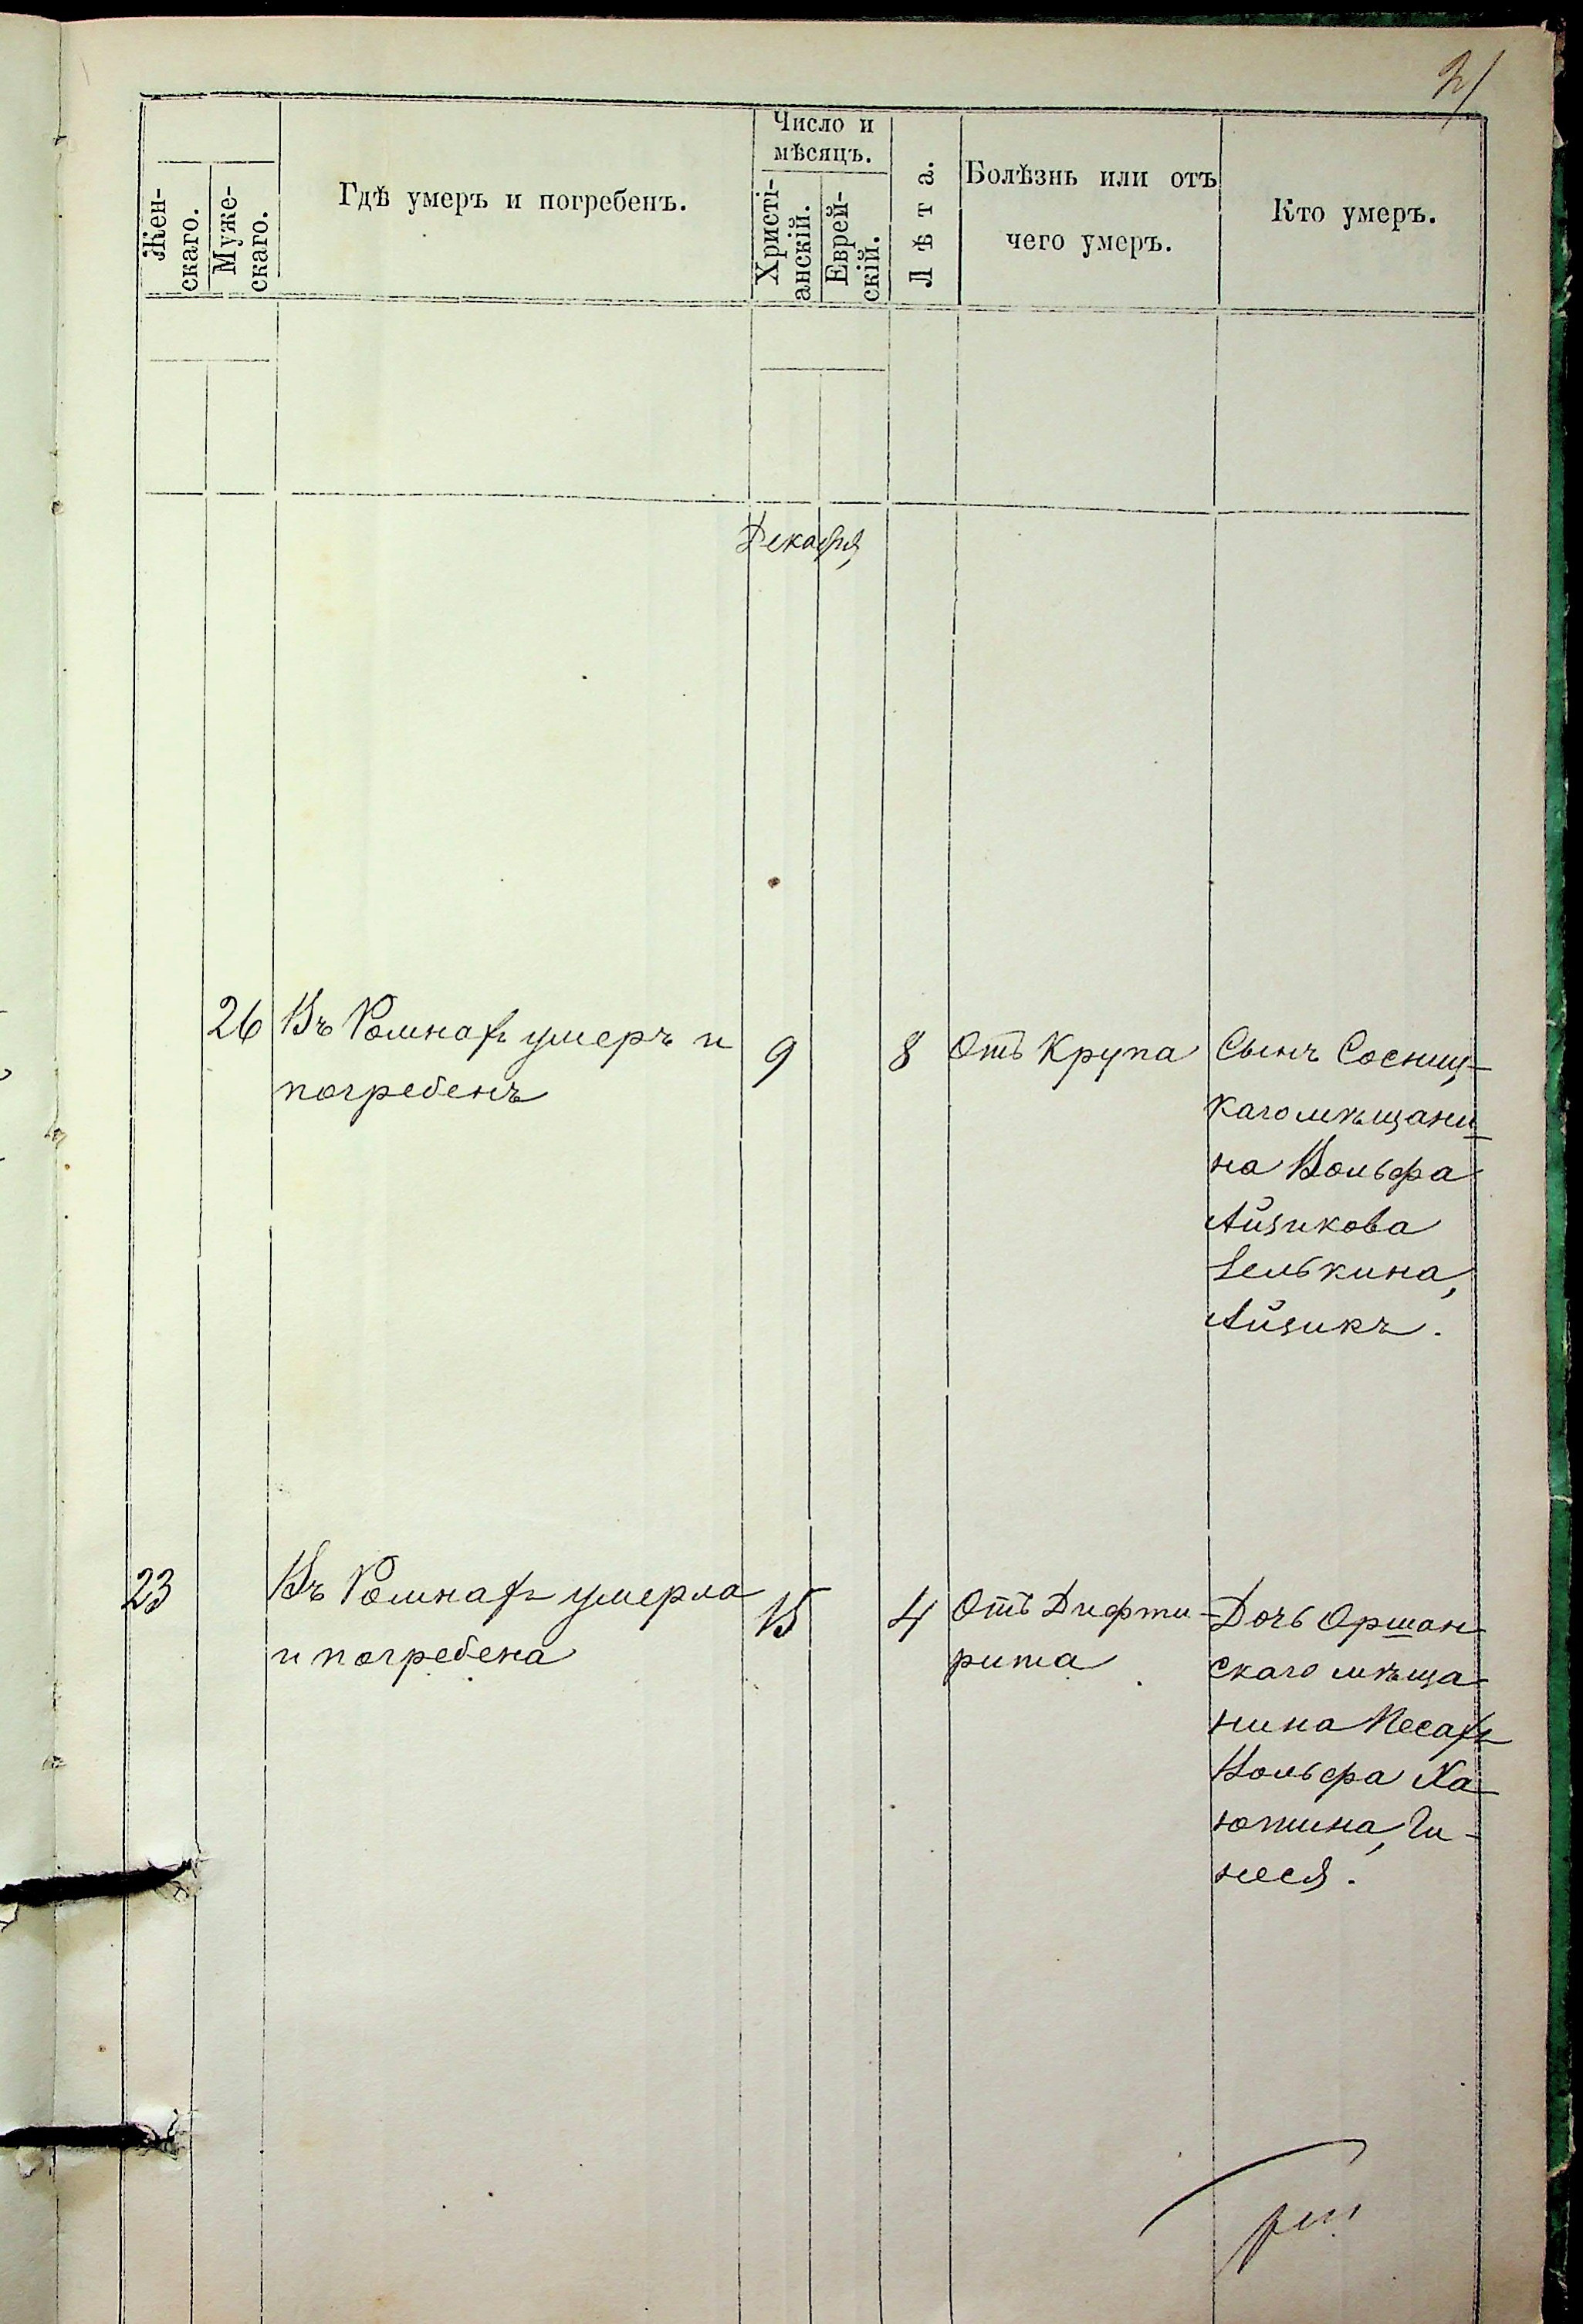 Число и
мѣсяцъ.
Жен-
скаго.
Муже-
скаго.
Гдѣ умеръ и погребенъ.
Христі-
анскій.
Еврей-
скій.
Лѣта.
Болѣзнь или отъ
чего умеръ.
Кто умеръ.
Декабря
26 Въ Ромнахъ умеръ и
погребенъ
9
8
Отъ Крупа
Сынъ Сосниц-
каго мѣщани-
на Вольфа
Айзикова
Белькина,
Айзикъ.
23
Въ Ромнахъ умерла
и погребена
15
4
Отъ Дифте-
рита
Дочь Оршан-
скаго мѣща-
нина Песахъ
Вольфа Ха-
ютина, Ги-
неся.